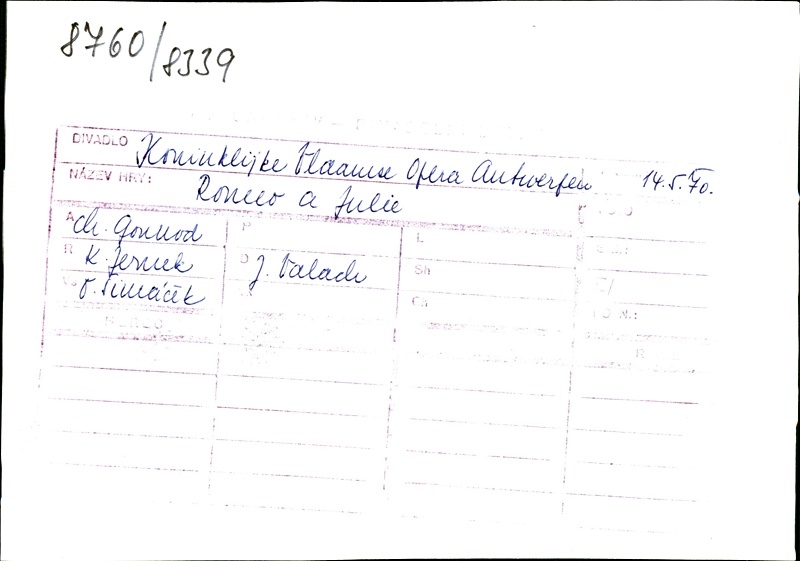 8760/8339
DIVADLO Koninklijke Vlaamse Opera Antwerpen 14.5.70.
NÁZEV HRY: Romeo a Julie
A Ch. Gounod P L
R K. Jernek D J. Valach Sh
V. Šimáček Ch